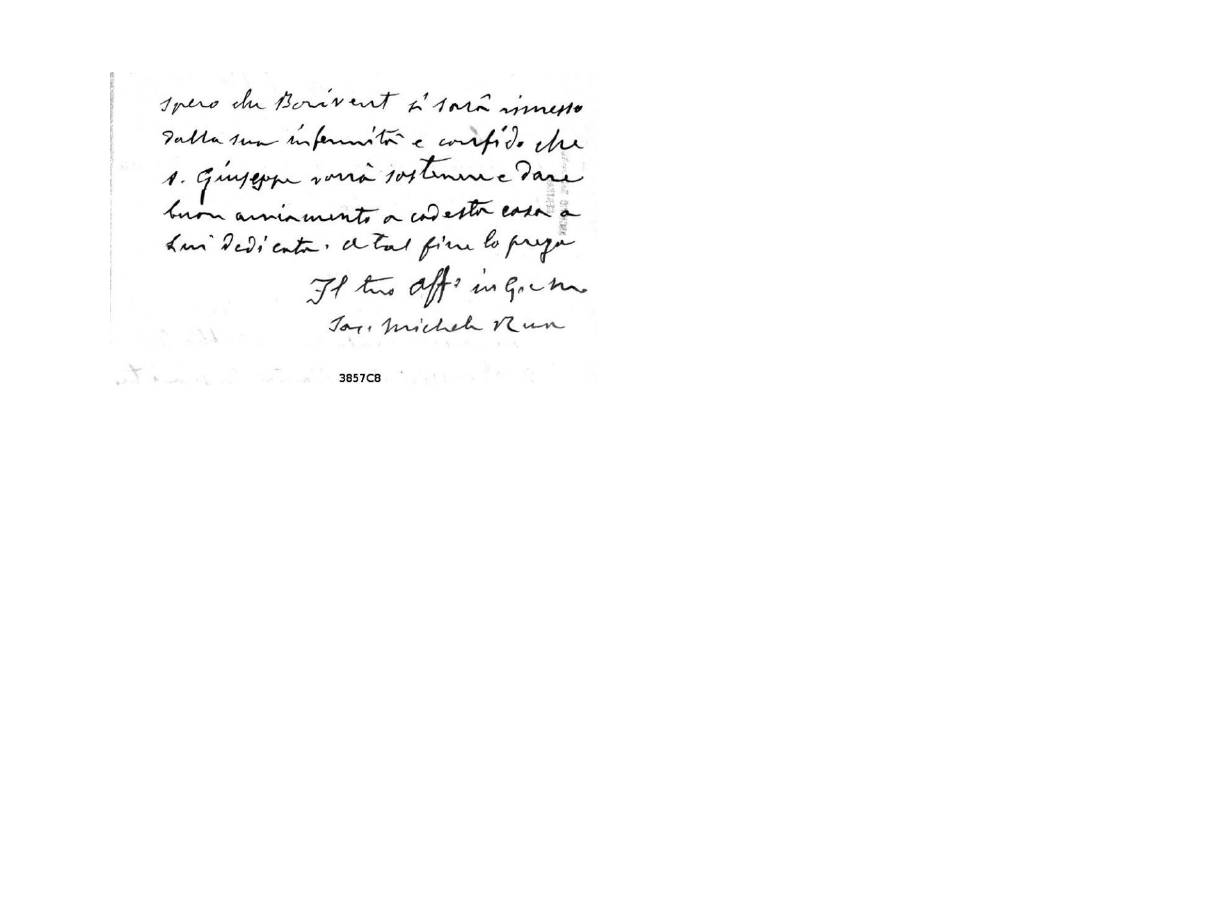 spero che Borivent si sarà rimesso
dalla sua infermità e confido che
S. Giuseppe vorrà sostenere e dare
buon avviamento a codesta casa a
Lui dedicata. A tal fine lo prega
Il tuo aff° in G. e M.
Sac. Michele Rua
3857C8